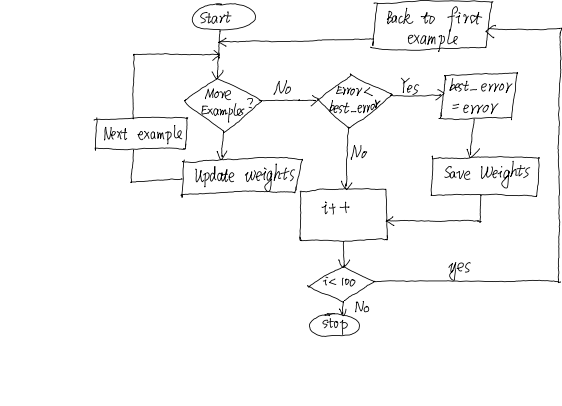 Start
Back to first
example
More
Examples?
No
Error<
best_error
Yes
best_error
= error
Next example
No
Update weights
Save Weights
i++
i<100
yes
No
stop